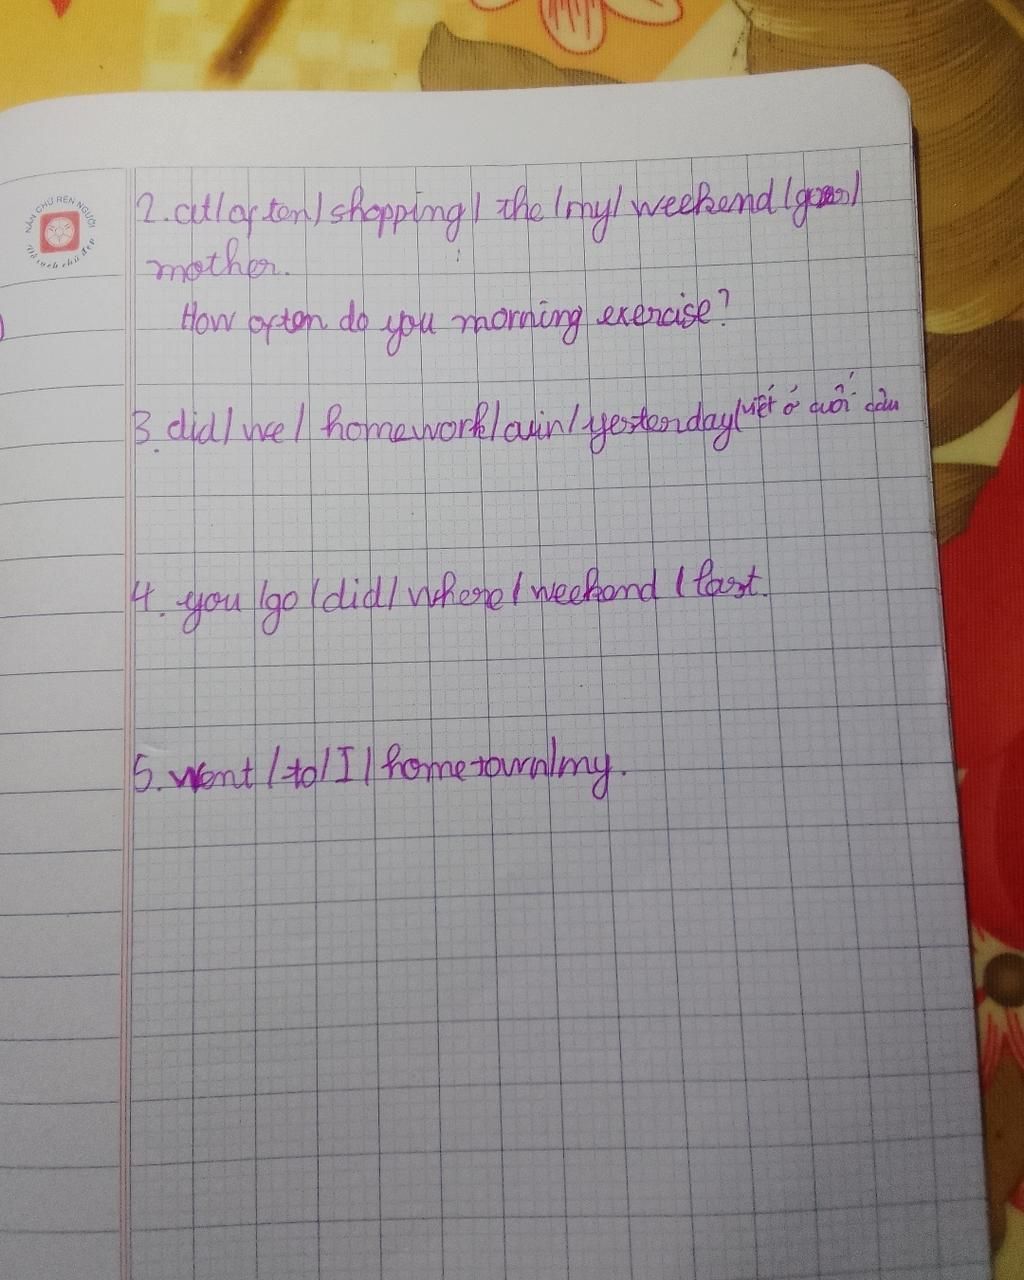 NẮN CHỮ RÈN NGƯỜI
Vở sạch chữ đẹp
2. at/often/shopping/ the/my/ weekend/goes/
mother.
How often do you morning exercise?
3. did/we/ homework/ouin/yesterday(viết ở cuối câu
4. you/go/did/where/weekend/last.
5. went/to/I/hometown/my.